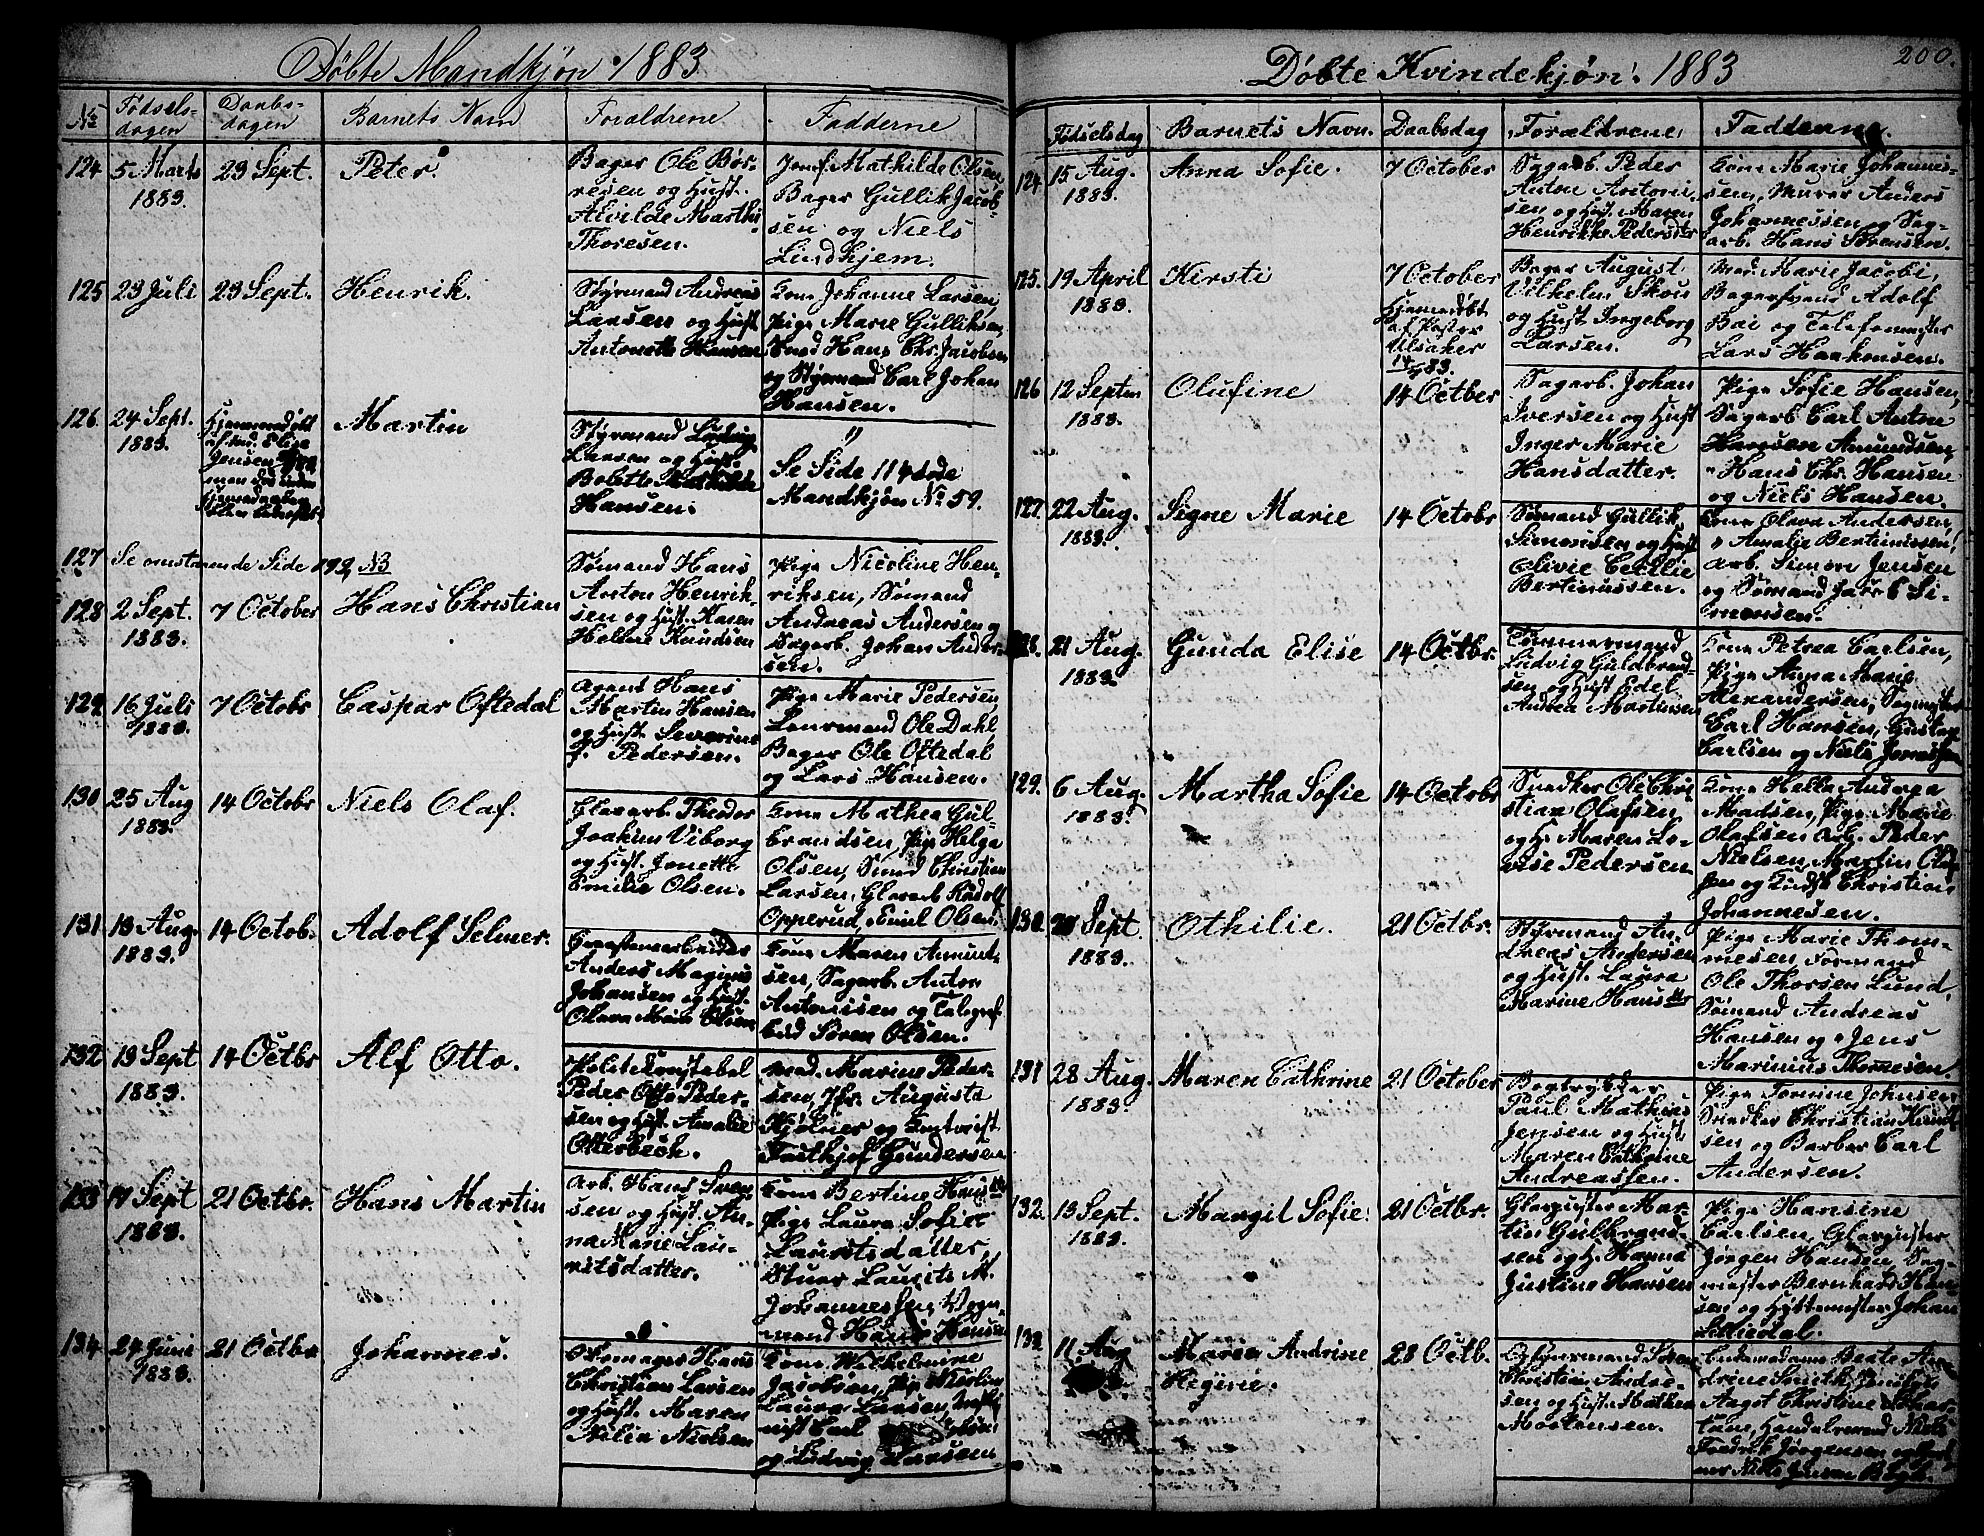 Døbte Mandkjøn 1883
No
Fødsels-
dagen
Daabs-
dagen
Barnets Navn
Forældrene
Fadderne
124
5 Marts
1883.
23 Sept.
Peter.
Bager Ole Bør-
resen og Hust.
Alvilde Marthi
Thoresen.
Jomf. Mathilde Olsen
Bager Gullik Jacob-
sen og Niels
Lindkjem.
125
23 Juli
23 Sept.
Henrik.
Styrmand Andreas
Larsen og Hust
Antonette Hansen
Kone Johanne Larsen,
Pige Marie Gulliksen,
Smed Hans Chr. Jacobsen
og Styrmand Carl Johan
Hansen.
126.
24 Sept.
1883.
Hjemmedøbt
af Md. Elise
Jensen
Martin
Styrmand Ludvig
Larsen og Hust.
Bolette Mathilde
Hansen.
Se Side 114
Mandkjøn No 59.
127
Se omstaaende Side 192, N3
128
2 Sept.
1883.
7 October
Hans Christian
Sømand Hans
Anton Henrik-
sen og Hust. Karen
Helene Knudsen
Pige Nicoline Hen-
riksen, Sømand
Andreas Andersen og
Sagarb. Johan Ander-
sen.
129
16 Juli
1883.
7 Octobr
Caspar Oftedal
Agent Hans
Martin Hansen
og Hust. Severine
F. Pedersen.
Pige Marie Pedersen,
Ole Dahl,
Bager Ole Oftedal
og Lars Hansen.
130
25 Aug
1883.
14 Octobr
Niels Olaf.
Glasarb. Theodor
Joakim Viborg
og Hust. Jonette
Emilie Olsen.
Kone Mathea Gul-
brandsen, Pige Helga
Olsen, Smed Christian
Larsen, Glasarb Rudolf
Opperud, Emil Olsen.
131
13 Aug.
1883.
14 Octob.
Adolf Selmer.
Graastensarbeider
Anders Magnus
Johansen og Hust.
Olava Marie Olsen
Kone Maren Amund-
sen, Sagarb. Anton
Antonissen og Telegraf
bud Søren Olsen.
132
13 Sept
1883.
14 Octbr
Alf Otto.
Politikonstabel
Peder Otto Peder-
sen og Hust. Amalie
Otterbech.
Mad. Marine Peder-
sen, Augusta
Kjølner og
Fridthjof Gundersen
133
17 Sept
1883.
21 Octbr.
Hans Martin
Arb. Hans Sven
sen og Hust. An-
na Marie Lau-
ritsdatter.
Kone Bertine Hansdtr
Pige Laura Sofie
Lauritsdatter,
Stuer Laurits M.
Johannessen, Vogn-
mand Hans Hansen
134
24 Juni
1883.
21 Octbr
Johannes.
Skomager Hans
Christian Larsen
og Hust. Maren
Nilia Nielsen
Kone Wilhelmine
Jacobsen, Pige
Laura Larsen,
Carl
og Ludvig Larsen
Døbte Kvindekjøn. 1883
200.
Fødselsdag
Barnets Navn.
Daabsdag
Forældrene
Fadderne.
124
15 Aug.
1883.
Anna Sofie.
7 October
Sagarb. Peder
Anton Antoni-
sen og Hust. Maren
Henrikke Pedersdtr
Kone Marie Johannes-
sen, Murer Anders
Johannessen og Sag-
arb. Hans Sørensen.
125.
19 April
1883.
Kirsti
7 October
Hjemmedøbt
af Pastor
Ulsaker
Bager August
Vilhelm Skou
og Hust Ingeborg
Larsen.
Mad. Marie Jacobi,
Bagersvend Adolf
Boi og Telefonmester
Lars Haakonsen.
126
12 Septm
1883.
Olufine
14 Octber
Sagarb. Johan
Iversen og Hust
Inger Marie
Hansdatter.
Pige Sofie Hansen,
Sagarb Carl Anton
Hansen Amundsen,
" Hans Chr. Hansen
og Niels Hansen.
127.
22 Aug.
1883.
Signe Marie
14 Octobr
Sømand Gullik
Simonsen og Hust
Olivie Cecilie
Bertinussen.
Kone Olava Andersen,
" Amalie Bertinussen,
Arb. Simon Jensen
og Sømand Jacob Si-
monsen.
128.
21 Aug.
1883.
Gunda Elise
14 Octbr.
Tømmermand
Ludvig Guldbrand-
sen og Hust Edel
Andrea Martinsen
Kone Petrea Carlsen,
Pige Anna Marie
Alexandersen, Sagmester
Carl Hansen, Gustav
Carlsen og Niels
129.
6 Aug.
1883.
Martha Sofie
14 Octobr
Snedker Ole Chri
stian Olafsen
og H. Maren Lo-
vise Pedersen
Kone Helle Andrea
Madsen, Pige Marie
Olafsen Arb. Peder
Nielsen, Martin Olaf
sen og Christian
Johannesen.
130.
Sept.
1883.
Othilie.
21 Octbr.
Styrmand An-
dreas Andersen
og Hust. Laura
Marine Hansdtr
Pige Marie Thom-
mesen Formand
Ole Thorsen Lund,
Sømand Andreas
Hansen og Jens
Marinius Thomesen.
131
28 Aug.
1883.
Maren Cathrine
21 October
Bogtrykker
Paul Mathias
Jensen og Hust
Maren Cathrine
Andreassen.
Pige Tomine Johnsen
Snedker Christian Knud
sen og Barber Carl
Andersen.
132.
13 Sept.
1883.
Margit Sofie.
21 Octbr.
Glaspuster Mar-
tin Gulbrand-
sen og H. Hanna
Justine Hansen
Pige Hansine
Carlsen, Glaspuster
Jørgen Hansen, Sag-
mester Bernhard Han-
sen og Hyttemester Johan
Schiedal.
133.
11 Aug
Maren Andrine
Higine.
28 Octb.
Styrmand Søren
Christian Andre-
sen og Hust. Mathea
Mortensen.
Enkemadame Beate An-
drine Smith,
Aagot Christine
Handelsmand Niels
Fredrik Jørgensen